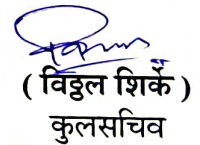 ( विठ्ठल शिर्के )
कुलसचिव